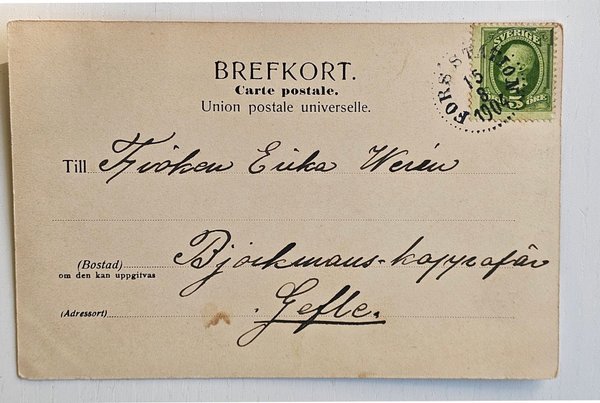 BREFKORT.
Carte postale.
Union postale universelle.
SVERIGE
5 ÖRE
FORS STATION
15
8
1904
Till Fröken Erika Werén
(Bostad)
om den kan uppgifvas
Björkmans-kappafär
(Adressort) Gefle.